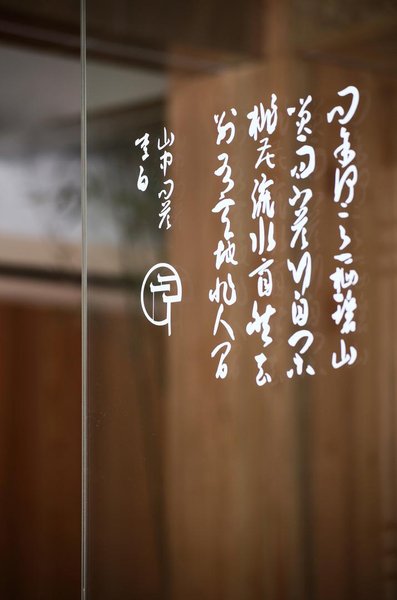 问余何意栖碧山
笑而不答心自闲
桃花流水窅然去
别有天地非人间
山中问答
李白